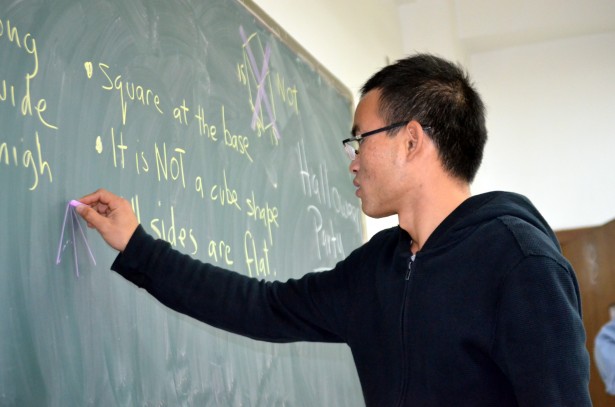 ong
wide
high
• Square at the base
• It is NOT a cube shape
ll sides are flat.
Not
Halloween
Party